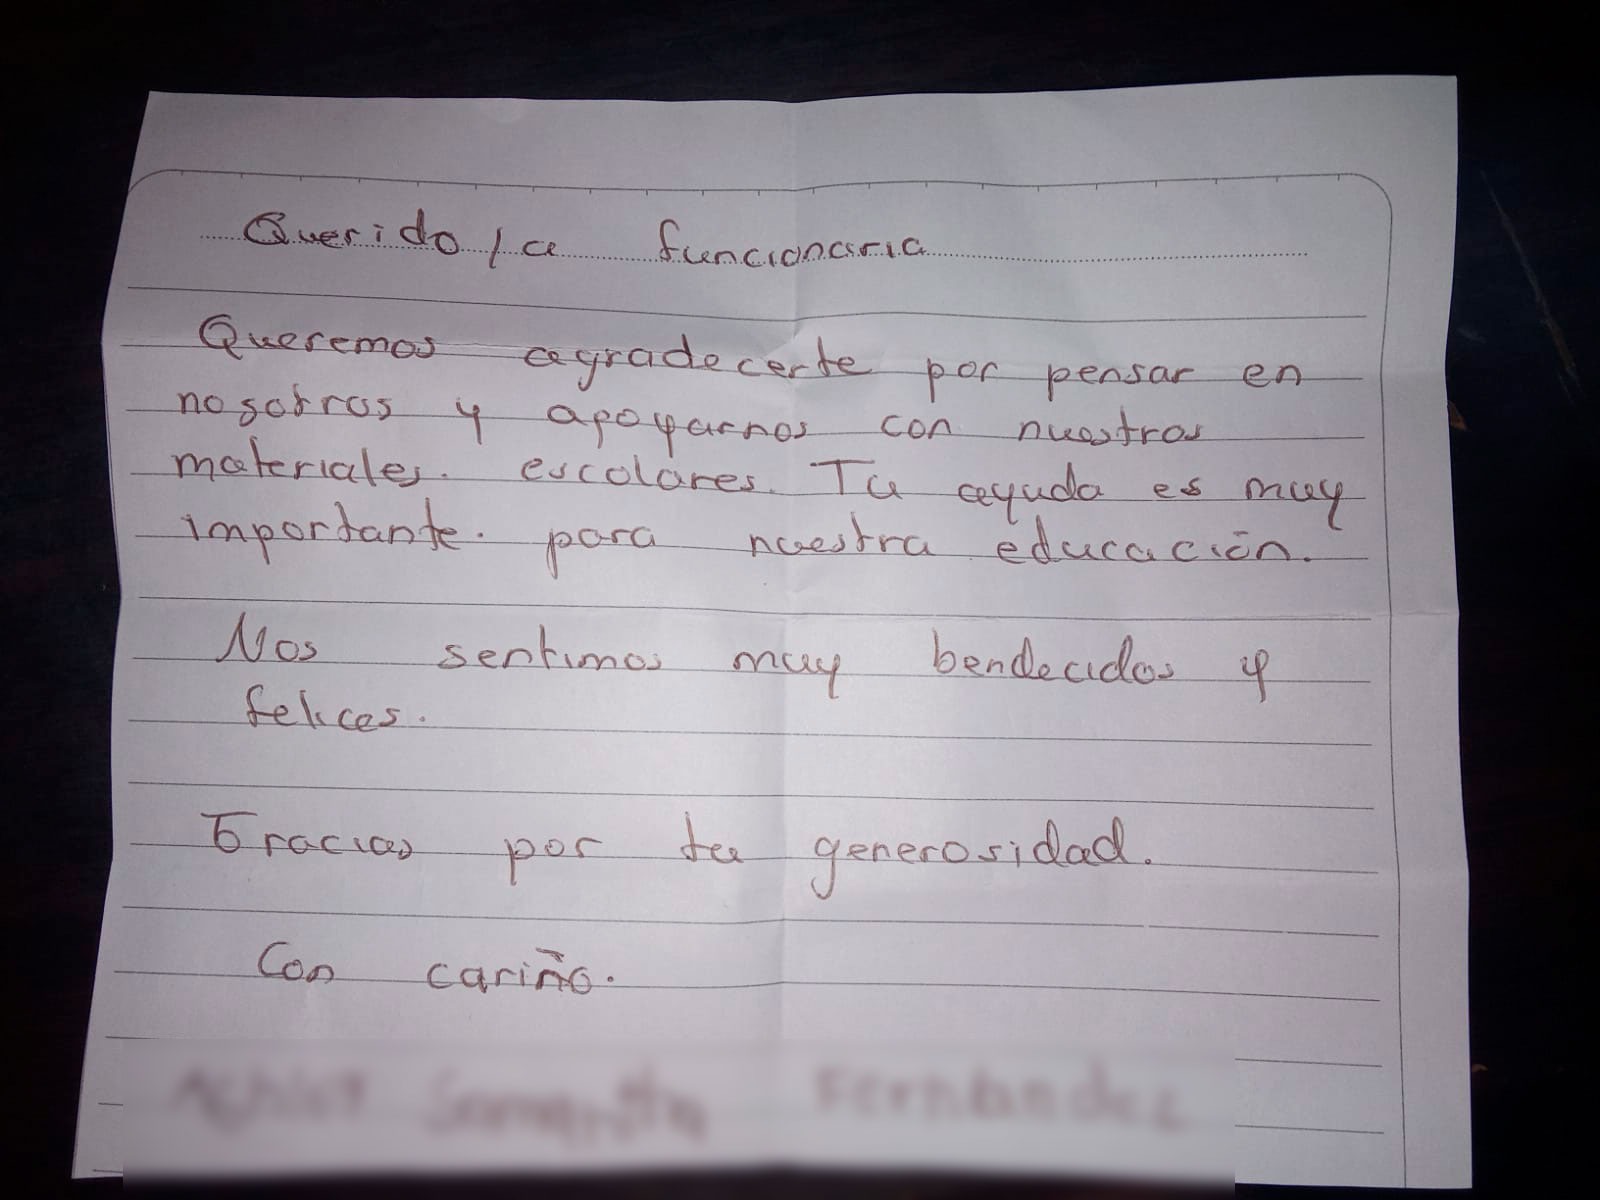 Querido/a funcionaria
Queremos agradecerte por pensar en
nosotros y apoyarnos con nuestros
materiales. escolares. Tu ayuda es muy
importante. para nuestra educación.
Nos sentimos muy bendecidos y
felices.
Gracias por tu generosidad.
Con cariño.